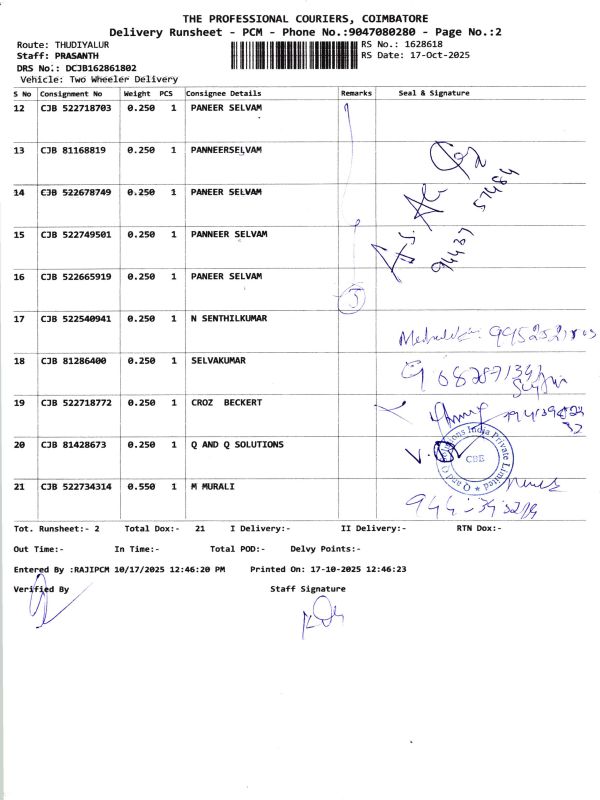 THE PROFESSIONAL COURIERS, COIMBATORE
Delivery Runsheet - PCM - Phone No.:9047080280 - Page No.:2
Route: THUDIYALUR RS No.: 1628618
Staff: PRASANTH RS Date: 17-Oct-2025
DRS No.: DCJB162861802
Vehicle: Two Wheeler Delivery
S No Consignment No Weight PCS Consignee Details Remarks Seal & Signature
12 CJB 522718703 0.250 1 PANEER SELVAM
13 CJB 81168819 0.250 1 PANNEERSELVAM
14 CJB 522678749 0.250 1 PANEER SELVAM
94437 57484
15 CJB 522749501 0.250 1 PANNEER SELVAM
16 CJB 522665919 0.250 1 PANEER SELVAM
5
17 CJB 522540941 0.250 1 N SENTHILKUMAR
18 CJB 81286400 0.250 1 SELVAKUMAR
19 CJB 522718772 0.250 1 CROZ BECKERT
20 CJB 81428673 0.250 1 Q AND Q SOLUTIONS
Q and Q Solutions India Private Limited
CBE
21 CJB 522734314 0.550 1 M MURALI
Tot. Runsheet:- 2 Total Dox:- 21 I Delivery:- II Delivery:- RTN Dox:-
Out Time:- In Time:- Total POD:- Delvy Points:-
Entered By :RAJIPCM 10/17/2025 12:46:20 PM Printed On: 17-10-2025 12:46:23
Verified By Staff Signature